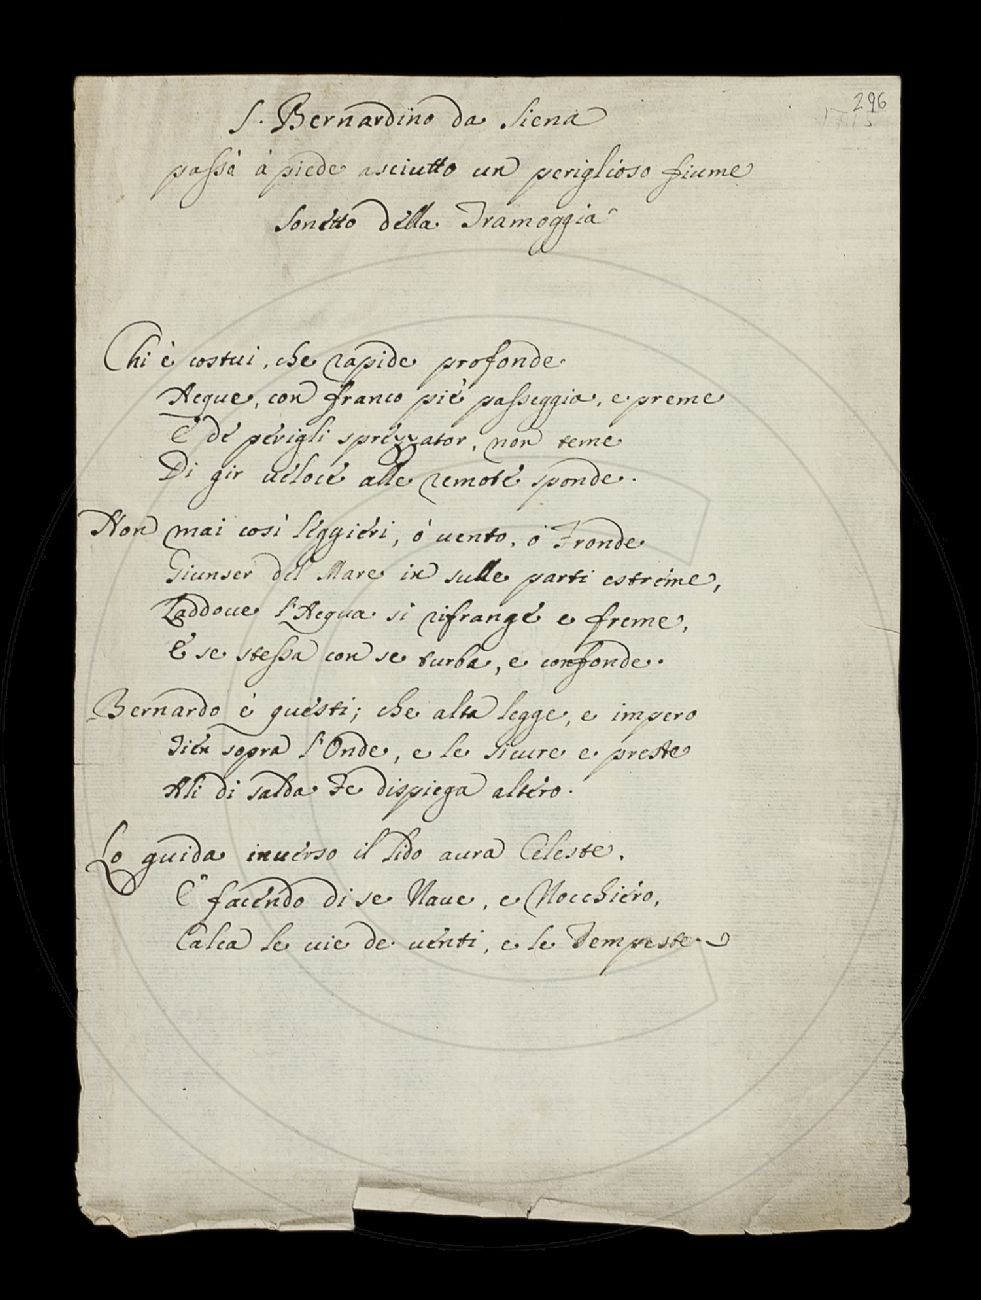 296
S. Bernardino da Siena
passò à piede asciutto un periglioso fiume
Sonetto della Tramoggia
Chi è costui, che rapide profonde
Acque, con franco piè passeggia, e preme
E dé perigli sprezzator, non teme
Di gir veloce alle remote sponde.
Non mai così leggieri, ò vento, ò Fronde
Giunser del Mare in sulle parti estreme,
Laddove l'Acqua si rifrange e freme,
E se stessa con se turba, e confonde.
Bernardo è questi; che alta legge, e impero
Tien sopra l'Onde, e le sicure e preste
Ali di salda Fe dispiega altero.
Lo guida inverso il lido aura Celeste,
E facendo di se Nave, e Nocchiero,
Calca le vie de venti, e le Tempeste